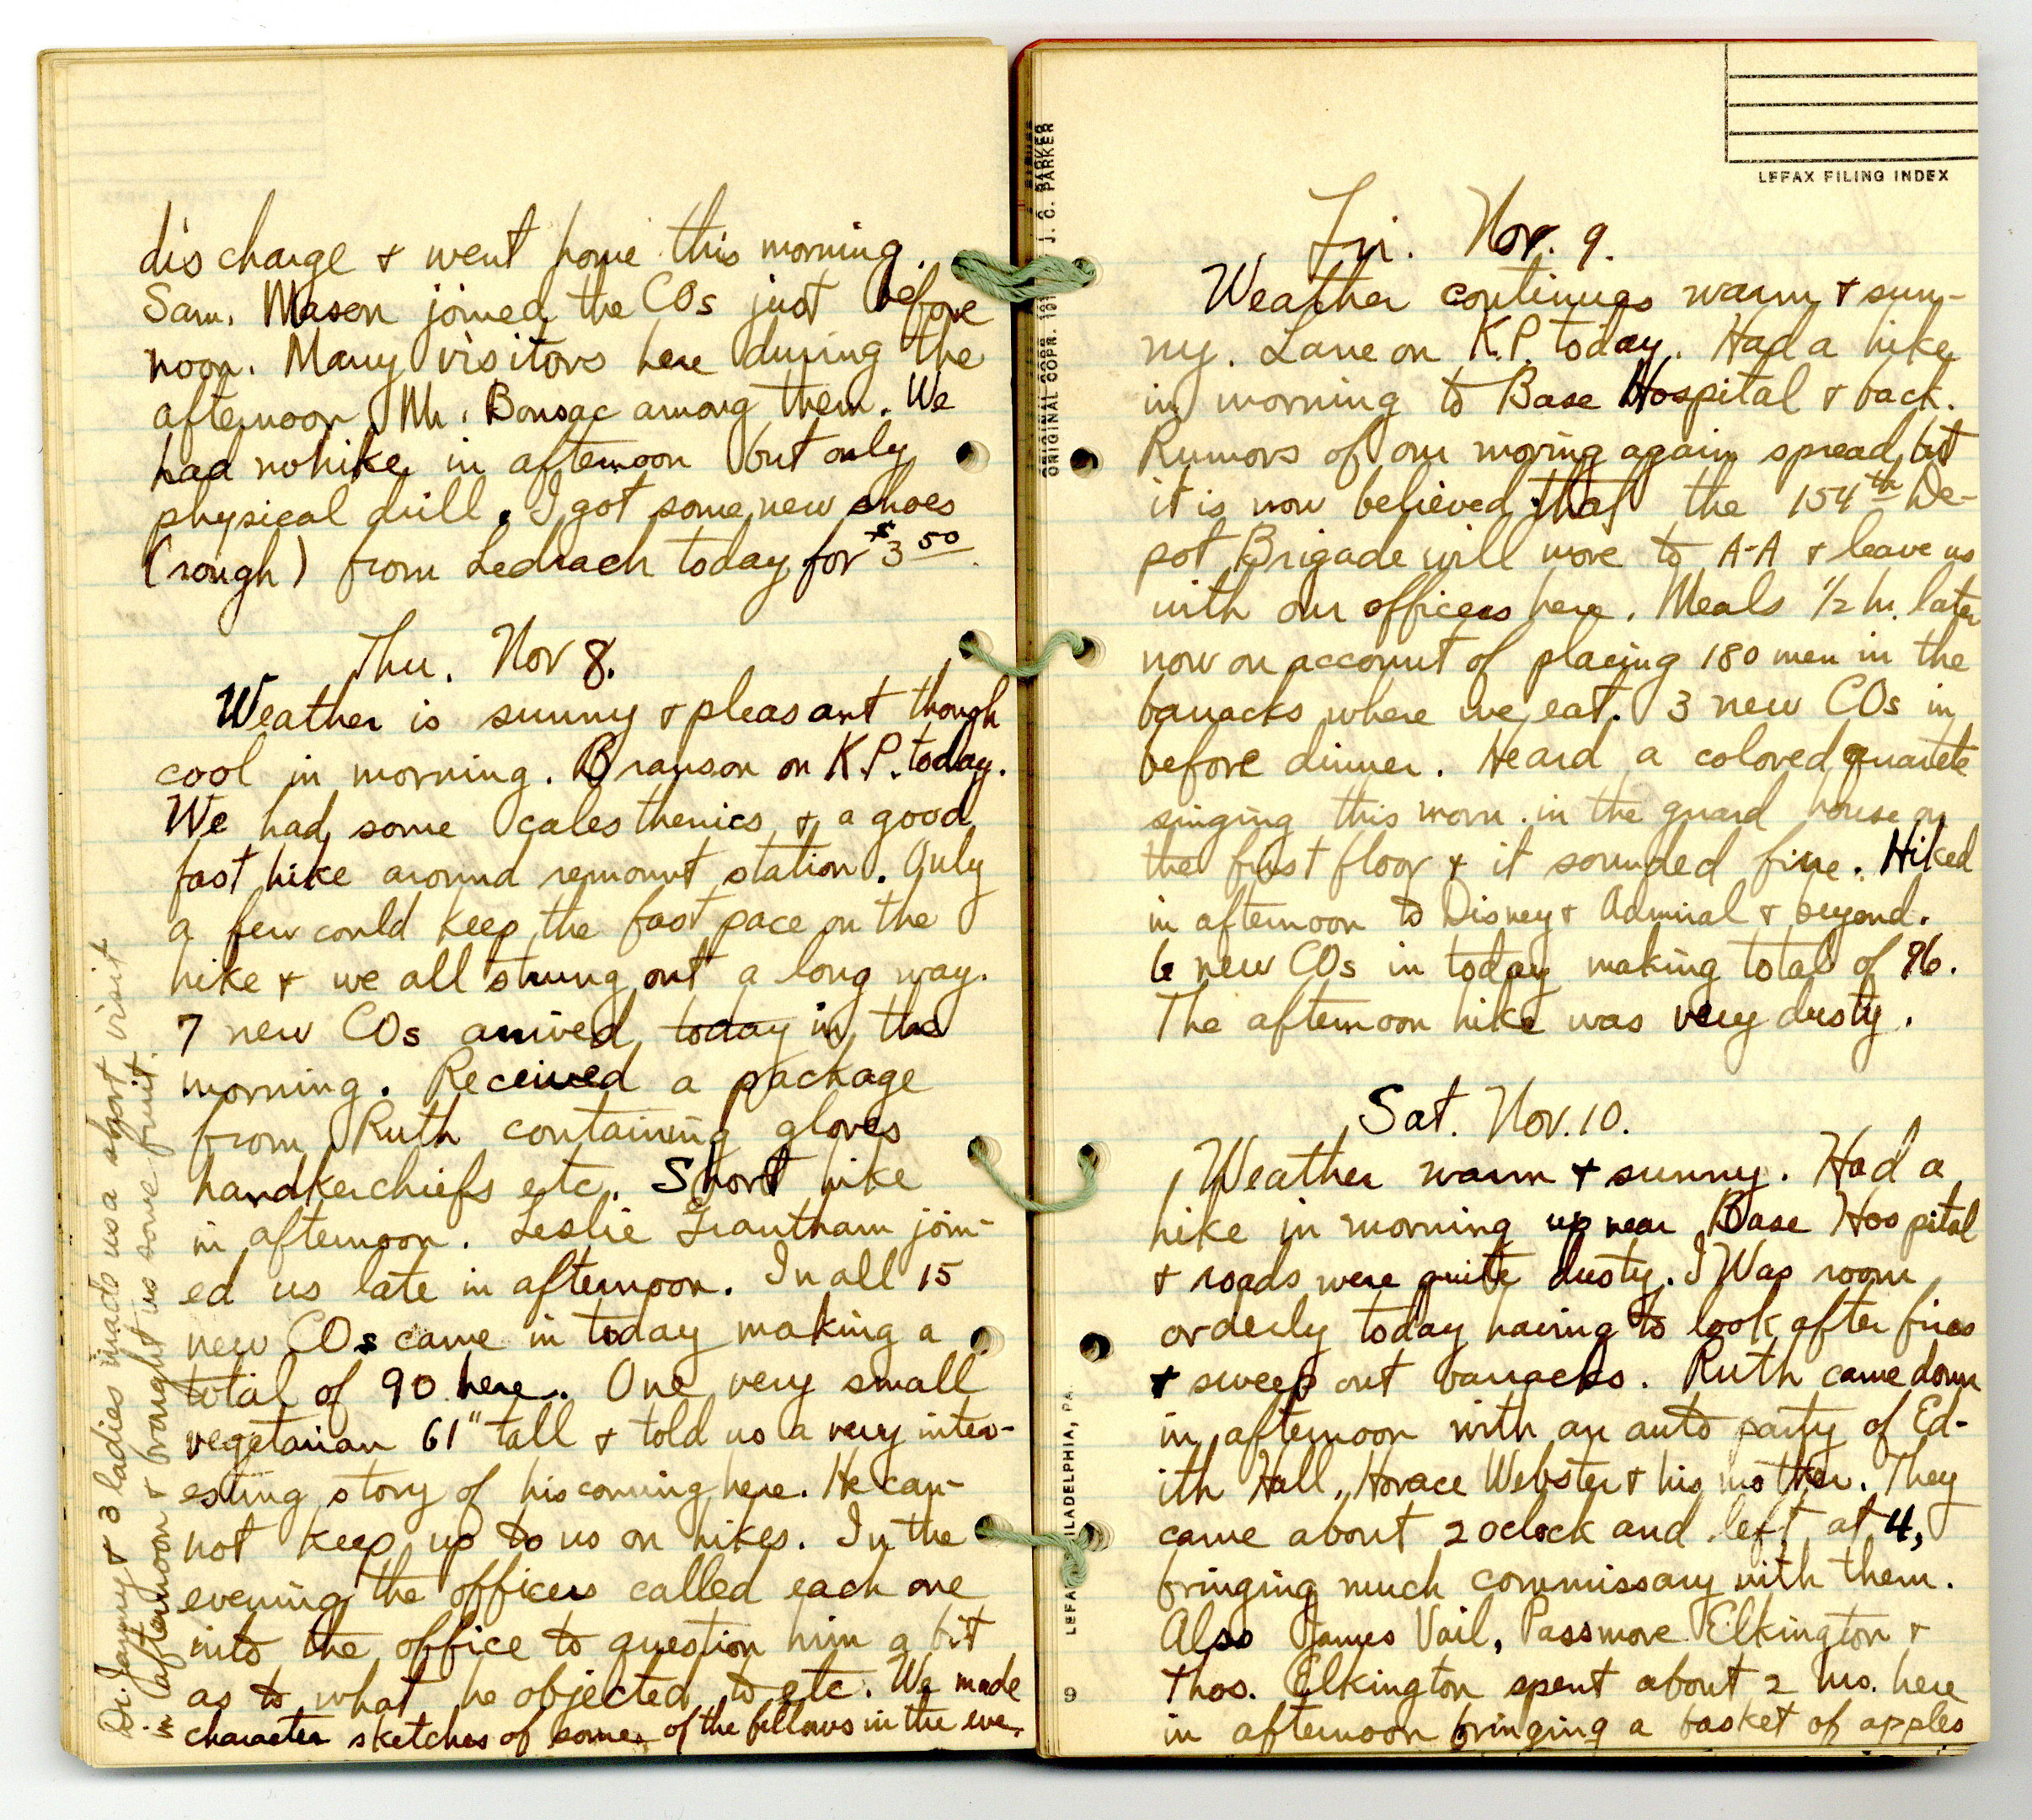 discharge & went home this morning.
Sam. Mason joined the COs just before
noon. Many visitors here during the
afternoon Mr. Bonsac among them. We
had no hike in afternoon but only
physical drill. I got some new shoes
(rough) from Ledrach today for $3 50.
Thu. Nov 8.
Weather is sunny & pleasant though
cool in morning. Branson on K.P. today.
We had some calesthenics & a good
fast hike around remount station. Only
a few could keep the fast pace on the
hike & we all strung out a long way.
7 new COs arrived today in the
morning. Received a package
from Ruth containing gloves
handkerchiefs etc. Short hike
in afternoon. Leslie Grantham join-
ed us late in afternoon. In all 15
new COs came in today making a
total of 90 here. One very small
vegetarian 61" tall & told us a very inter-
esting story of his coming here. He can-
not keep up to us on hikes. In the
evening the officers called each one
into the office to question him a bit
as to what he objected to etc. We made
character sketches of some of the fellows in the eve.
Dr. Janny & 3 ladies made us a short visit
in afternoon & brought us some fruit.
LEFAX FILING INDEX
J. C. PARKER
ORIGINAL COPR. 191
Fri. Nov. 9.
Weather continues warm & sun-
ny. Lane on K.P. today. Had a hike
in morning to Base Hospital & back.
Rumors of our moving again spread, but
it is now believed that the 154th De-
pot Brigade will move to A-A & leave us
with our officers here. Meals 1/2 hr. later
now on account of placing 180 men in the
barracks where we eat. 3 new COs in
before dinner. Heard a colored quartete
singing this morn. in the guard house on
the first floor & it sounded fine. Hiked
in afternoon to Disney & Admiral & beyond.
6 new COs in today making total of 96.
The afternoon hike was very dusty.
Sat. Nov. 10.
Weather warm & sunny. Had a
hike in morning up near Base Hospital
& roads were quite dusty. I was room
orderly today having to look after fires
& sweep out barracks. Ruth came down
in afternoon with an auto party of Ed-
ith Hall, Horace Webster & his mother. They
came about 2 oclock and left at 4,
bringing much commissary with them.
Also James Vail, Passmore Elkington &
Thos. Elkington spent about 2 hrs. here
in afternoon bringing a basket of apples
LEFA ILADELPHIA, PA.
9